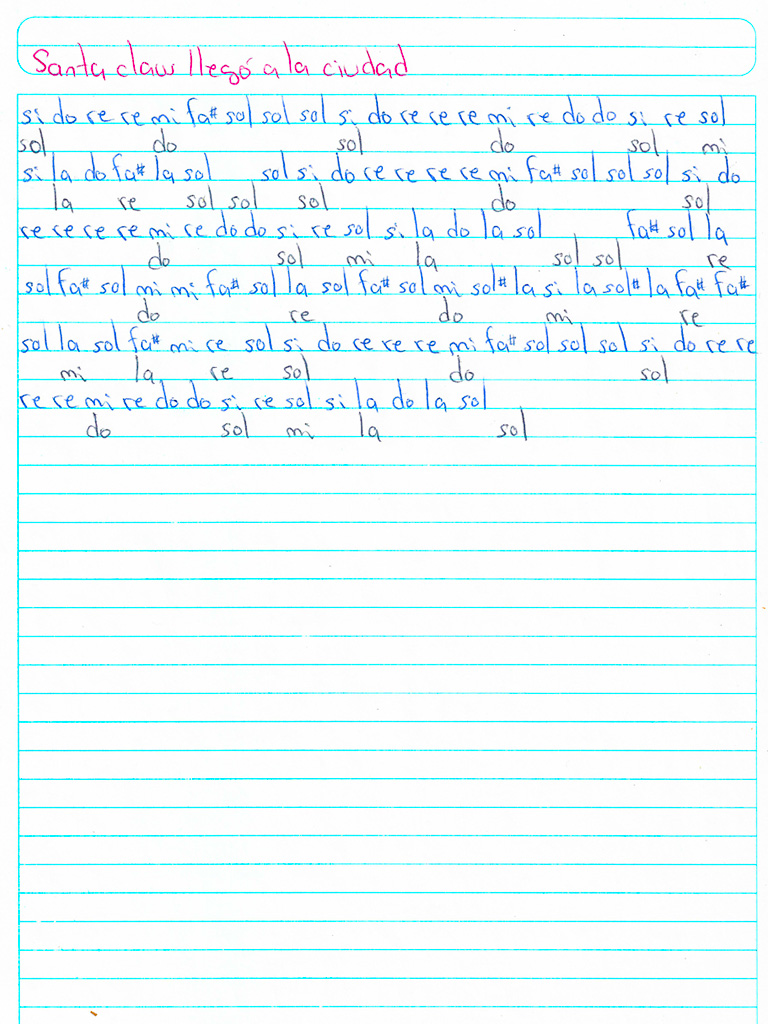 Santa claus llegó a la ciudad
si do re re mi fa# sol sol sol si do re re re mi re do do si re sol
sol do sol do sol mi
si la do fa# la sol sol si do re re re re mi fa# sol sol sol si do
la re sol sol sol do sol
re re re re mi re do do si re sol si la do la sol fa# sol la
do sol mi la sol sol re
sol fa# sol mi mi fa# sol la sol fa# sol mi sol# la si la sol# la fa# fa#
do re do mi re
sol la sol fa# mi re sol si do re re re mi fa# sol sol sol si do re re
mi la re sol do sol
re re mi re do do si re sol si la do la sol
do sol mi la sol